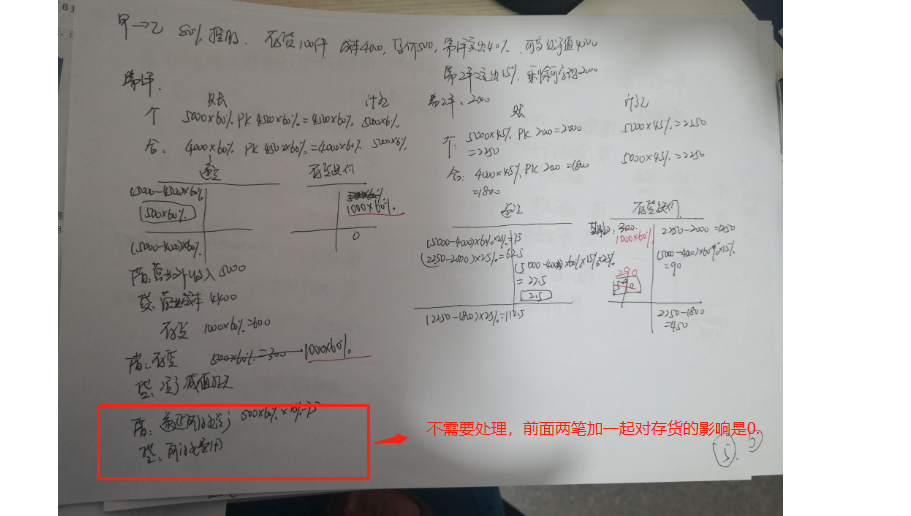 甲→乙 80%控股. 存货100件 成本4000, 售价5000, 第1年卖出40%. 可变现净值4000
第2年卖出15%. 剩余可变现2000
第1年.
账 计税
个 5000×60% PK 4500×60%=4500×60% 5000×60%
合: 4000×60% PK 4500×60%=4000×60% 5000×60%
递延 存货跌价
(5000-4500)×60%
500×60%
1000×60%
(5000-4000)×60%
0
借:营业收入 5000
贷:营业成本 4400
存货 1000×60%=600
借:存货 500×60%=300 1000×60%
贷:资产减值损失
借:递延所得税资产 500×60%×
贷:所得税费用
第2年: 2000
账 计税
个: 5000×45% PK 2000=2000 5000×45%=2250
=2250
合: 4000×45% PK 2000=1800 5000×45%=2250
=1800
递延 存货跌价
(5000-4000)×60%×25%=75
(2250-2000)×25%=62.5
(5000-4000)×60%×15%×25%
=22.5
2.5
(2250-1800)×25%=112.5
300 2250-2000=250
1000×60%
(5000-4000)×60%×15%
=90
290
2250-1800
=450
不需要处理，前面两笔加一起对存货的影响是0.
5.